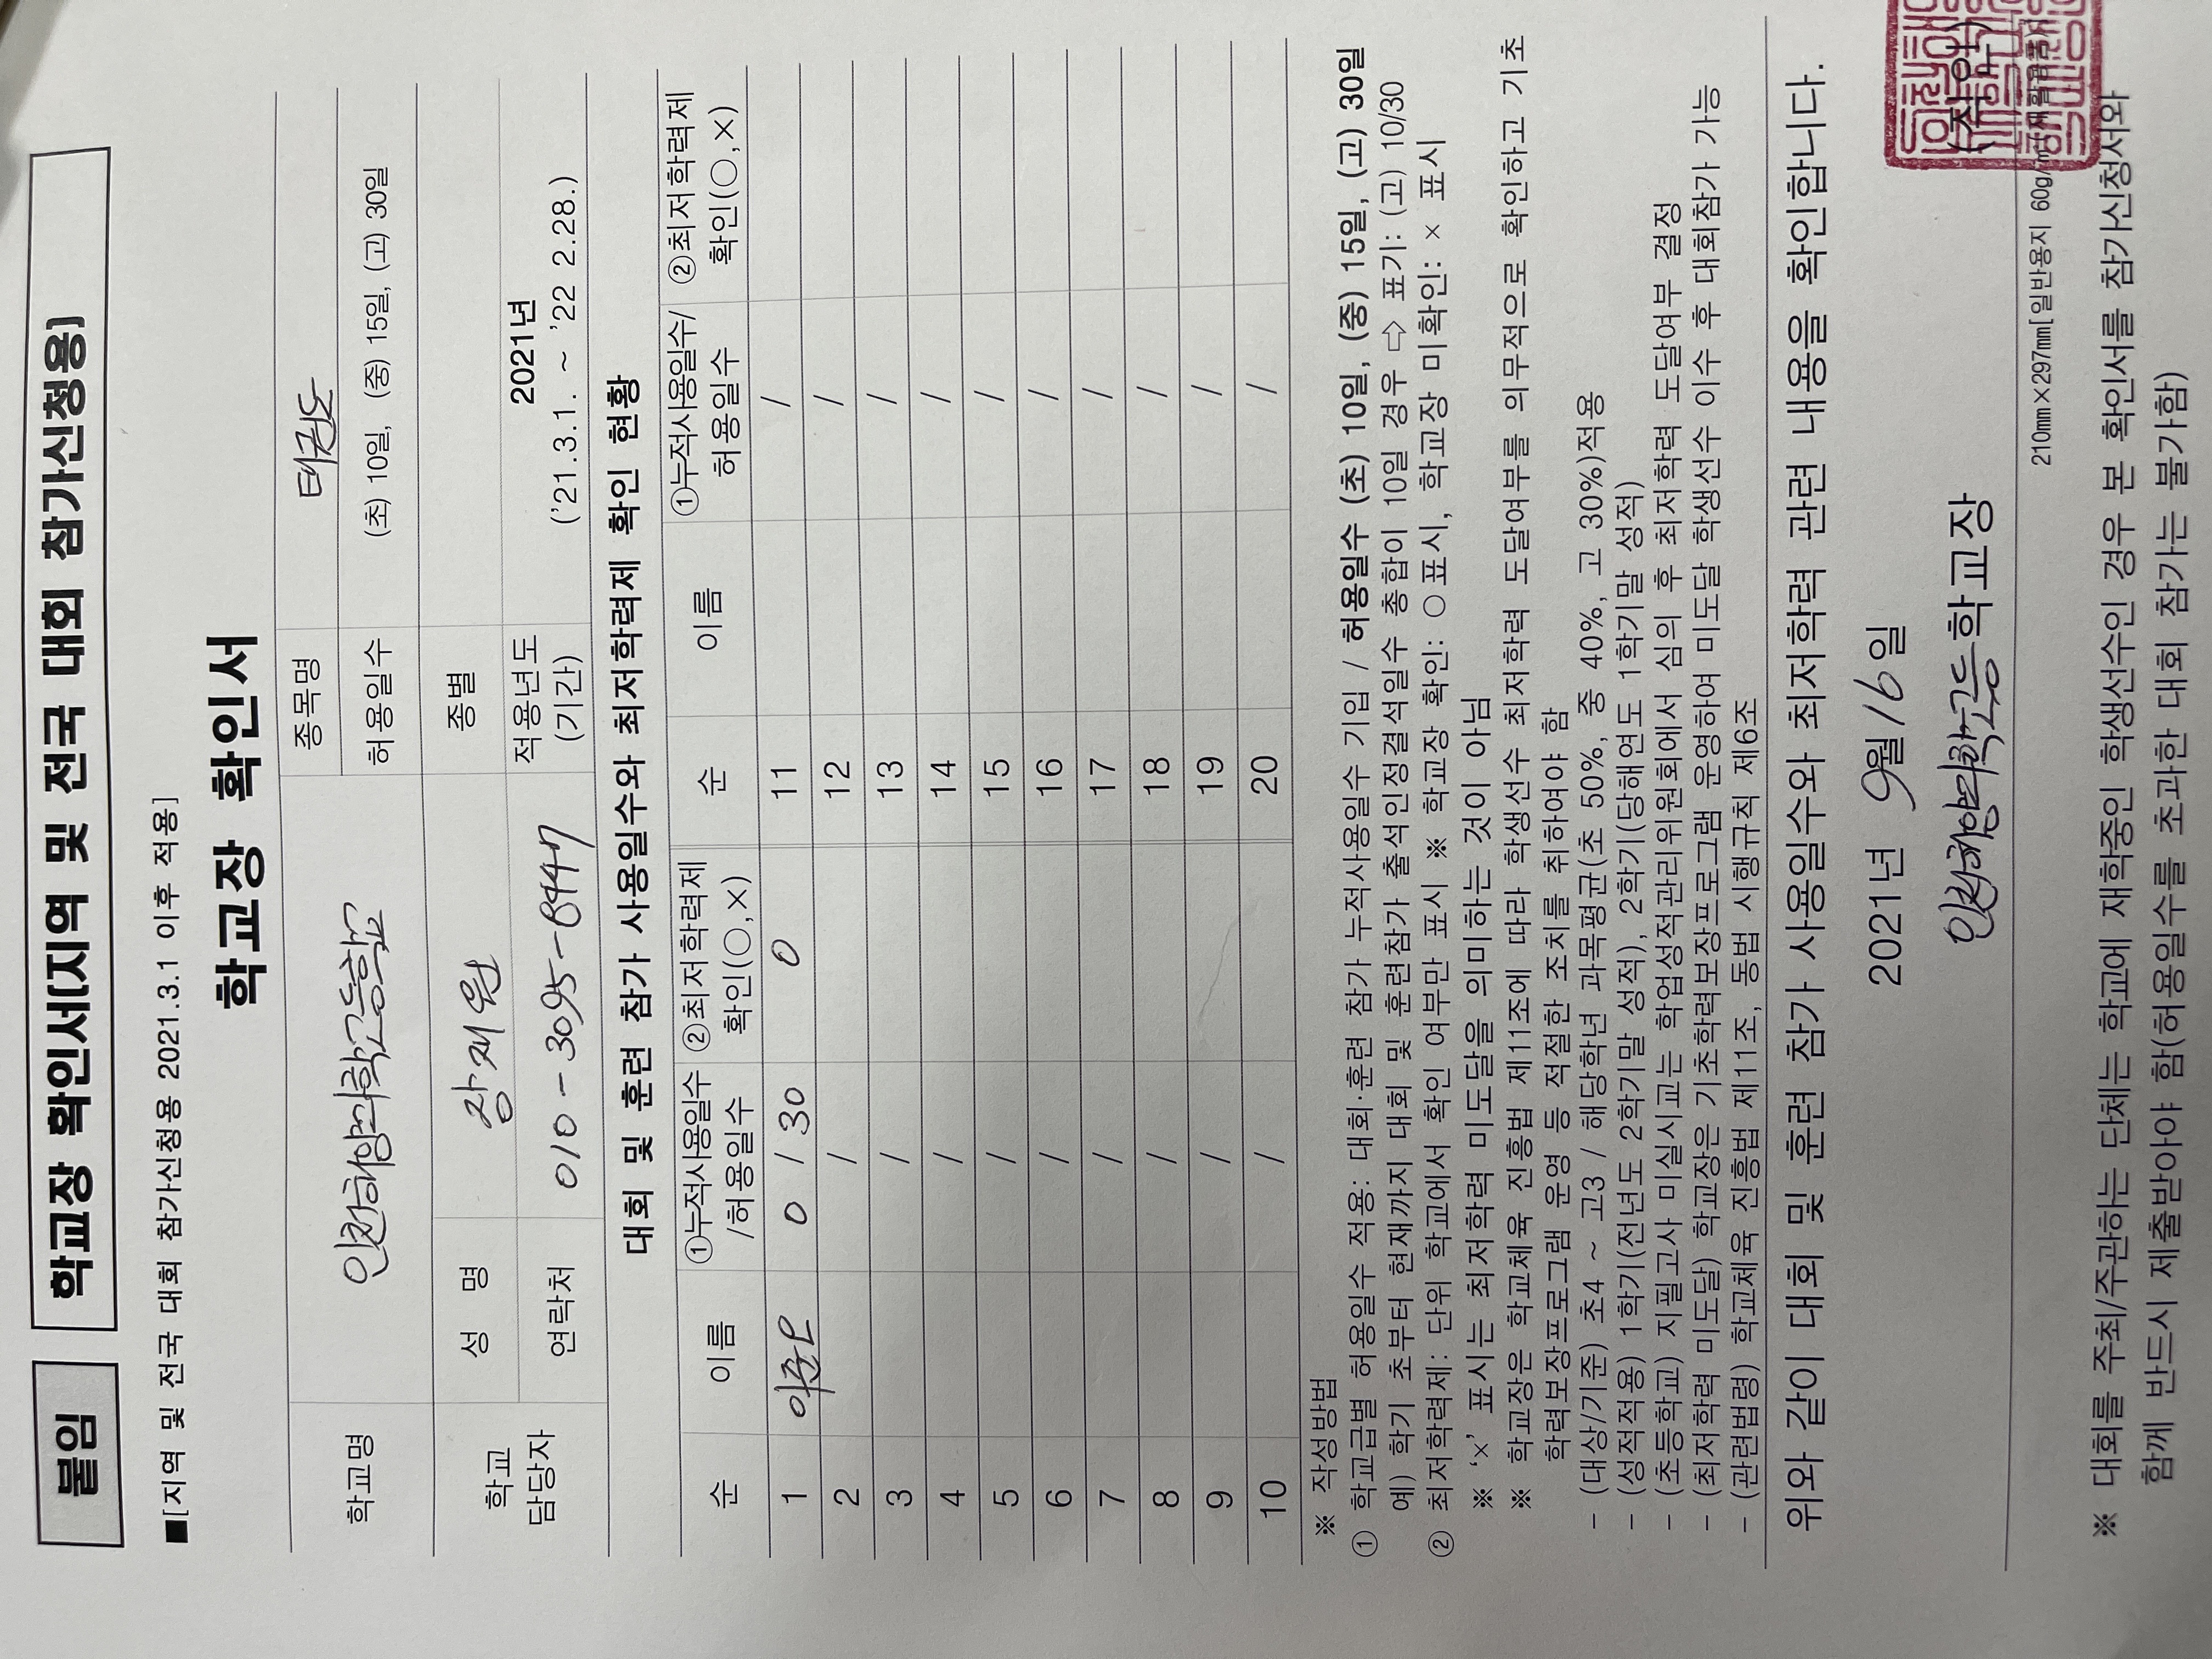 붙임
학교장 확인서(지역 및 전국 대회 참가신청용)
■[지역 및 전국 대회 참가신청용 2021.3.1 이후 적용]
학교장 확인서
학교명 인천해양과학고등학교 종목명 태권도
허용일수 (초) 10일, (중) 15일, (고) 30일
학교 담당자 성 명 장재원 종별
연락처 010-3095-8447 적용년도 (기간) 2021년 ('21.3.1. ~ '22 2.28.)
대회 및 훈련 참가 사용일수와 최저학력제 확인 현황
순 이름 ①누적사용일수/허용일수 ②최저학력제 확인(○,×) 순 이름 ①누적사용일수/허용일수 ②최저학력제 확인(○,×)
1 이준 0 / 30 0 11 /
2 / 12 /
3 / 13 /
4 / 14 /
5 / 15 /
6 / 16 /
7 / 17 /
8 / 18 /
9 / 19 /
10 / 20 /
※ 작성방법
① 학교급별 허용일수 적용: 대회·훈련 참가 누적사용일수 기입 / 허용일수 (초) 10일, (중) 15일, (고) 30일
예) 학기 초부터 현재까지 대회 및 훈련참가 출석인정결석일수 총합이 10일 경우 ⇨ 표기: (고) 10/30
② 최저학력제: 단위 학교에서 확인 여부만 표시 ※ 학교장 확인: ○표시, 학교장 미확인: × 표시
※ '×' 표시는 최저학력 미도달을 의미하는 것이 아님
※ 학교장은 학교체육 진흥법 제11조에 따라 학생선수 최저학력 도달여부를 의무적으로 확인하고 기초
학력보장프로그램 운영 등 적절한 조치를 취하여야 함
- (대상/기준) 초4 ~ 고3 / 해당학년 과목평균(초 50%, 중 40%, 고 30%)적용
- (성적적용) 1학기(전년도 2학기말 성적), 2학기(당해연도 1학기말 성적)
- (초등학교) 지필고사 미실시교는 학업성적관리위원회에서 심의 후 최저학력 도달여부 결정
- (최저학력 미도달) 학교장은 기초학력보장프로그램 운영하여 미도달 학생선수 이수 후 대회참가 가능
- (관련법령) 학교체육 진흥법 제11조, 동법 시행규칙 제6조
위와 같이 대회 및 훈련 참가 사용일수와 최저학력 관련 내용을 확인합니다.
2021년 9월 16일
인천해양과학고등학교장 (직인)
210㎜×297㎜[일반용지 60g/㎡(재활용품)]
※ 대회를 주최/주관하는 단체는 학교에 재학중인 학생선수인 경우 본 확인서를 참가신청서와
함께 반드시 제출받아야 함(허용일수를 초과한 대회 참가는 불가함)